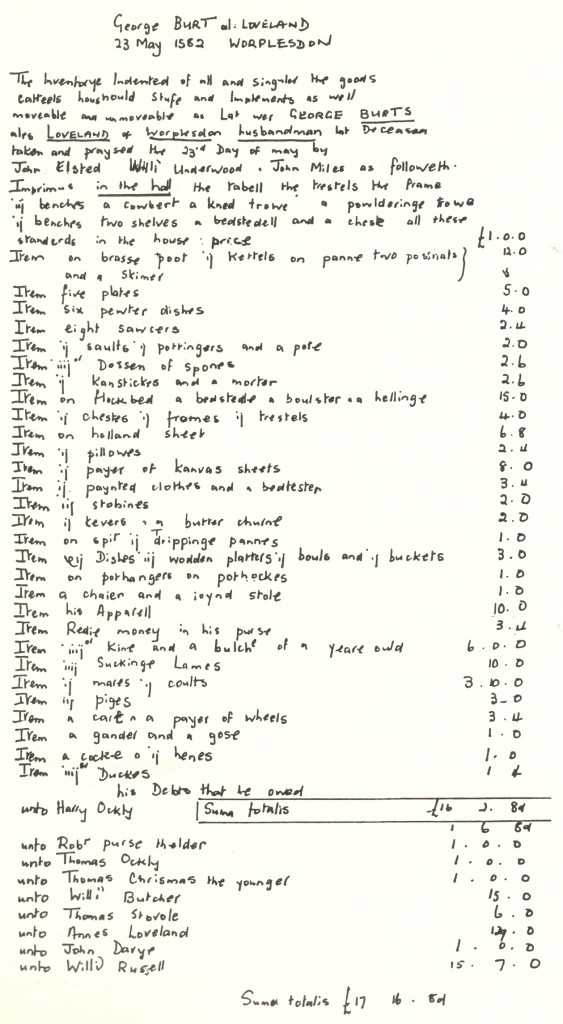 George BURT al: LOVELAND
23 May 1582 WORPLESDON
The Inventorye Indented of all and singular the goods
catteels houshould Stufe and Implements as well
moveable and unmoveable as Lat wer GEORGE BURTS
ales LOVELAND of Worplesdon husbandman lat Deceasen
taken and praysed the 23rd Day of may by
John Elsted Willi Underwood . John Miles as followeth.
Imprimus in the hall the tabell the trestels the frame
iij benches a cowbert a kned trowe a powlderinge towe
ij benches two shelves a bedstedell and a cheste all these
standerds in the house : price £1.0.0
Item on brasse poot ij Kettels on panne two posinats 12.0
and a Skimer
Item five plates 5.0
Item six pewter dishes 4.0
Item eight sawcers 2.4
Item ij saults ij pottingers and a pote 2.0
Item iiij Dossen of spones 2.6
Item ij Kanstickes and a morter 2.6
Item on flockbed a bedstede a boulster a hellinge 15.0
Item ij chestes ij frames ij trestels 4.0
Item on holland sheet 6.8
Item ij pillowes 2.4
Item ij payer of Kanvas sheets 8.0
Item ij paynted clothes and a bedtester 3.4
Item iij stobines 2.0
Item ij kevers a butter churne 2.0
Item on spit ij Drippinge pannes 1.0
Item Dishes iij wodden platters ij bouls and ij buckets 3.0
Item on pothangers on pothockes 1.0
Item a chaier and a ioynd stole 1.0
Item his Apparell 10.0
Item Redie money in his purse 3.4
Item iiij Kine and a bulche of a yeare ould 6.0.0
Item iiij Suckinge Lames 10.0
Item ij mares ij coults 3.10.0
Item iij piges 3-0
Item a cart a payer of wheels 3.4
Item a gander and a gose 1.0
Item a cocke ij henes 1.0
Item iiij Duckes 1 4
his Debts that he owed
Suma totalis £16 2. 8d
unto Harry Ockly 1 6 8d
unto Robt purse thelder 1.0.0
unto Thomas Ockly 1.0.0
unto Thomas Chrismas the younger 1.0.0
unto Willi Butcher 15.0
unto Thomas Stovole 6.0
unto Annes Loveland
unto John Darye 1.0.0
unto Willi Russell 15.7.0
Suma totalis £17 16. 8d